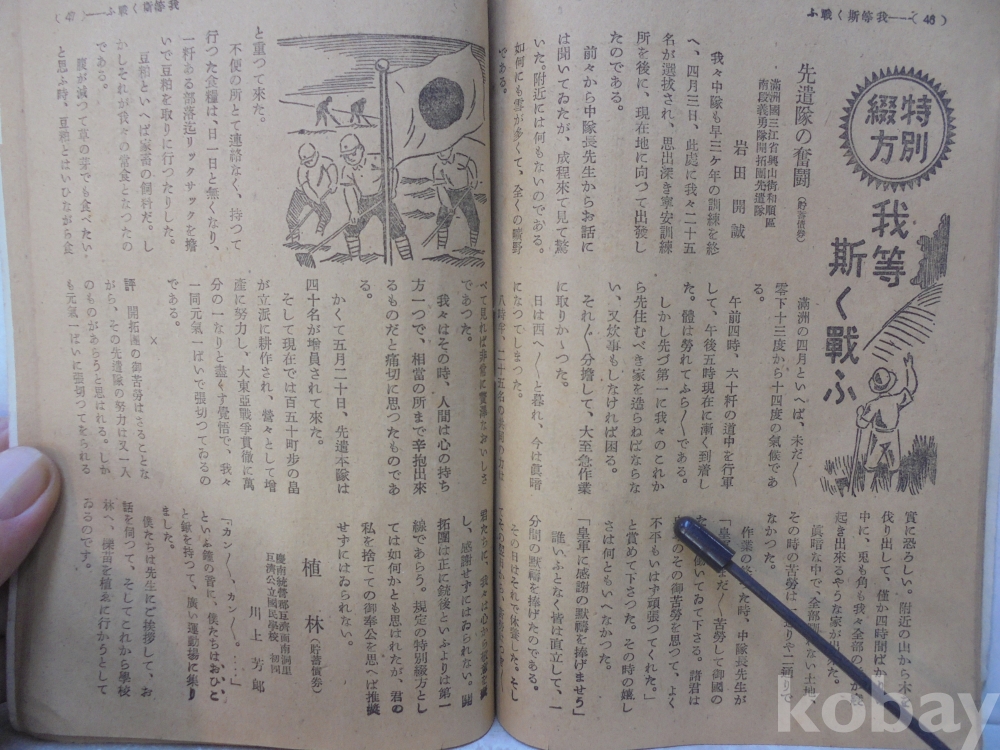 (46)――我等斯く戰ふ
特別綴方
我等斯く戰ふ
先遣隊の奮闘(貯蓄債券)
滿洲國三江省興山街和順區
南段義勇隊開拓團先遣隊
岩田開誠
我々中隊も早三ケ年の訓練を終
へ、四月三日、此處に我々二十五
名が選拔され、思出深き寧安訓練
所を後に、現在地に向つて出發し
たのである。
前々から中隊長先生からお話に
は聞いてゐたが、成程來て見て驚
いた。附近には何もないのである。
如何にも雪が多くて、全くの曠野
である。
滿洲の四月といへば、未だ〱
零下十三度から十四度の氣候であ
る。
午前四時、六十粁の道中を行軍
して、午後五時現在に漸く到着し
た。體は勞れてふら〱である。
しかし先づ第一に我々のこれか
ら先住むべき家を造らねばならな
い、又炊事もしなければ困る。
それ〲分擔して、大至急作業
に取りかゝつた。
日は西へ〱と暮れ、今は眞暗
になつてしまつた。
八時半、二十五名の
實に恐ろしい。附近の山から木を
伐り出して、僅か四時間ばか
中に、兎も角も我々全部の
起き出來るやうな家が出來た。
眞暗な中で、全部
ない土地、
その時の苦勞は一
りや二通りで
なかつた。
作業の
た時、中隊長先生が
「皇軍
まだ〱苦勞して御國の
働いてゐて下さる。諸君は
のその御苦勞を思つて、よく
不平もいはず頑張つてくれた。」
と賞めて下さつた。その時の嬉し
さは何ともいへなかつた。
「皇軍に感謝の默禱を捧げませう」
誰いふとなく皆は直立して、一
分間の默禱を捧げたのである。
その日はそれで休養した。そし
(47)――我等斯く戰ふ
と重つて來た。
不便の所とて連絡なく、持つて
行つた食糧は、日一日と無くなり、
一粁ある部落迄リックサックを擔
いで豆粕を取りに行つたりした。
豆粕といへば家畜の飼料だ。し
かしそれが我々の常食となつたの
である。
腹が減つて草の芽でも食べたい
と思ふ時、豆粕とはいひながら食
べて見れば非常に
おいしさ
であつた。
我々はその時、人間は心の持ち
方一つで、相當の所まで辛抱出來
るものだと痛切に思つたものであ
る。
かくて五月二十日、先遣本隊は
四十名が增員されて來た。
そして現在では百五十町歩の畠
が立派に耕作され、營々として增
產に努力し、大東亞戰爭貫徹に萬
分の一なりと盡くす覺悟で、我々
一同元氣一ぱいで張切つてゐるの
である。
×
評 開拓團の御苦勞はさることな
がら、その先遣隊の努力は又一入
のものがあらうと思はれる。しか
も元氣一ぱいに張切つてをられる
し、感謝せずにはゐられない。開
拓團は正に銃後といふよりは第一
線であらう。規定の特別綴方とし
ては如何かとも思はれたが、君の
私を捨てての御奉公を思へば推奬
せずにはゐられない。
植林(貯蓄債券)
互濟公立國民學校 初四
川上芳郎
「カン〱、カン〱。……」
といふ鐘の音に、僕たちはおひと
と鍬を持つて、廣い運動場に集り
ました。
僕たちは先生にご挨拶して、お
話を伺つて、そしてこれから學校
林へ、櫟苗を植ゑに行かうとして
ゐるのです。
kobay